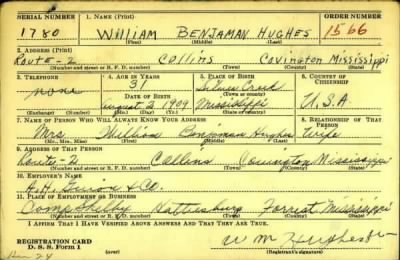 SERIAL NUMBER 1. NAME (Print) ORDER NUMBER
1780 WILLIAM BENJAMAN HUGHES 1566
(First) (Middle) (Last)
2. ADDRESS (Print)
Route-2 Collins Covington Mississippi
(Number and street or R. F. D. number) (Town) (County) (State)
3. TELEPHONE 4. AGE IN YEARS 5. PLACE OF BIRTH 6. COUNTRY OF CITIZENSHIP
none 31 Creek
DATE OF BIRTH (Town or county)
August 2 1909 Mississippi U.S.A
(Exchange) (No.) (Mo.) (Day) (Yr.) (State or country)
7. NAME OF PERSON WHO WILL ALWAYS KNOW YOUR ADDRESS 8. RELATIONSHIP OF THAT PERSON
Mrs William Benjaman Hughes wife
(Mr., Mrs., Miss) (First) (Middle) (Last)
9. ADDRESS OF THAT PERSON
Route-2 Collins Covington Mississippi
(Number and street or R. F. D. number) (Town) (County) (State)
10. EMPLOYER'S NAME
& Co.
11. PLACE OF EMPLOYMENT OR BUSINESS
Camp Shelby Hattiesburg Forrest Mississippi
(Number and street or R. F. D. number) (Town) (County) (State)
I AFFIRM THAT I HAVE VERIFIED ABOVE ANSWERS AND THAT THEY ARE TRUE.
REGISTRATION CARD
D. S. S. Form 1
W M Hughes
(Registrant's signature)